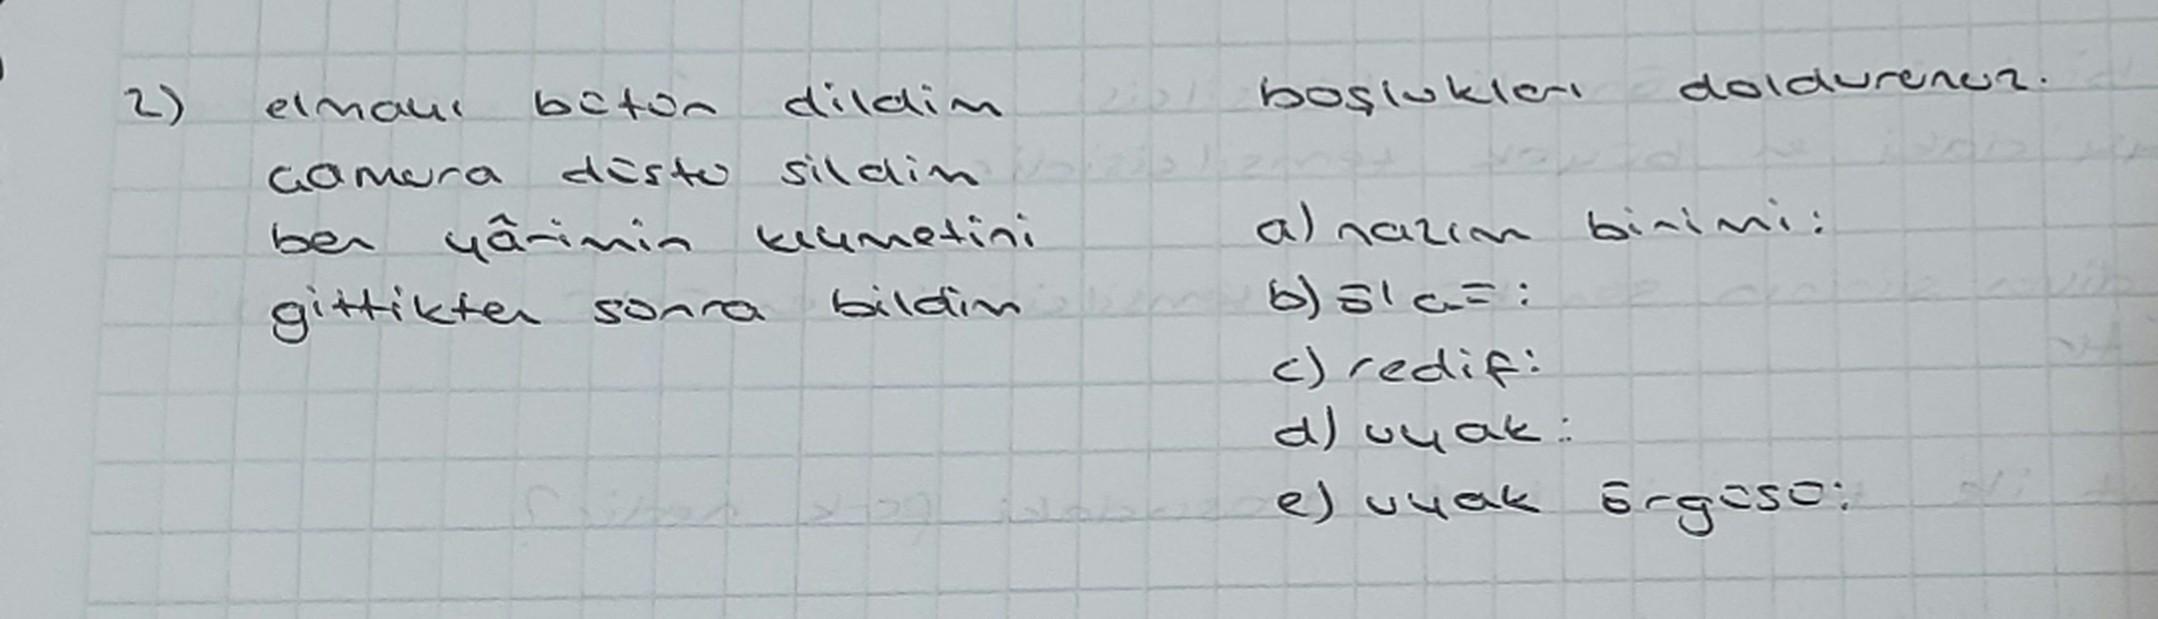 2) elmayı bütün dildim
çamura düştü sildim
ben yârimin kıymetini
gittikten sonra bildim
boşlukları doldurunuz.
a) nazım birimi:
b) ölçü:
c) redif:
d) uyak:
e) uyak örgüsü: